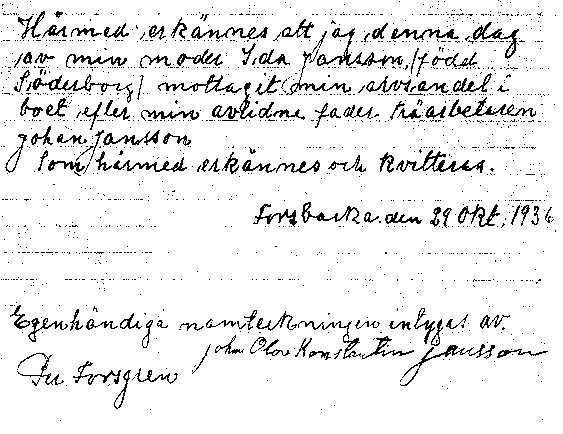 Härmed erkännes att jag denna dag
av min moder Ida Jansson, (född
Söderborg) mottagit min arvsandel i
boet efter min avlidne fader träarbetaren
Johan Jansson
Som härmed erkännes och kvitteras.
Forsbacka den 29 Okt, 1936
Egenhändiga namteckningen intygas av.
John Olov Konstantin Jansson
Per Forsgren